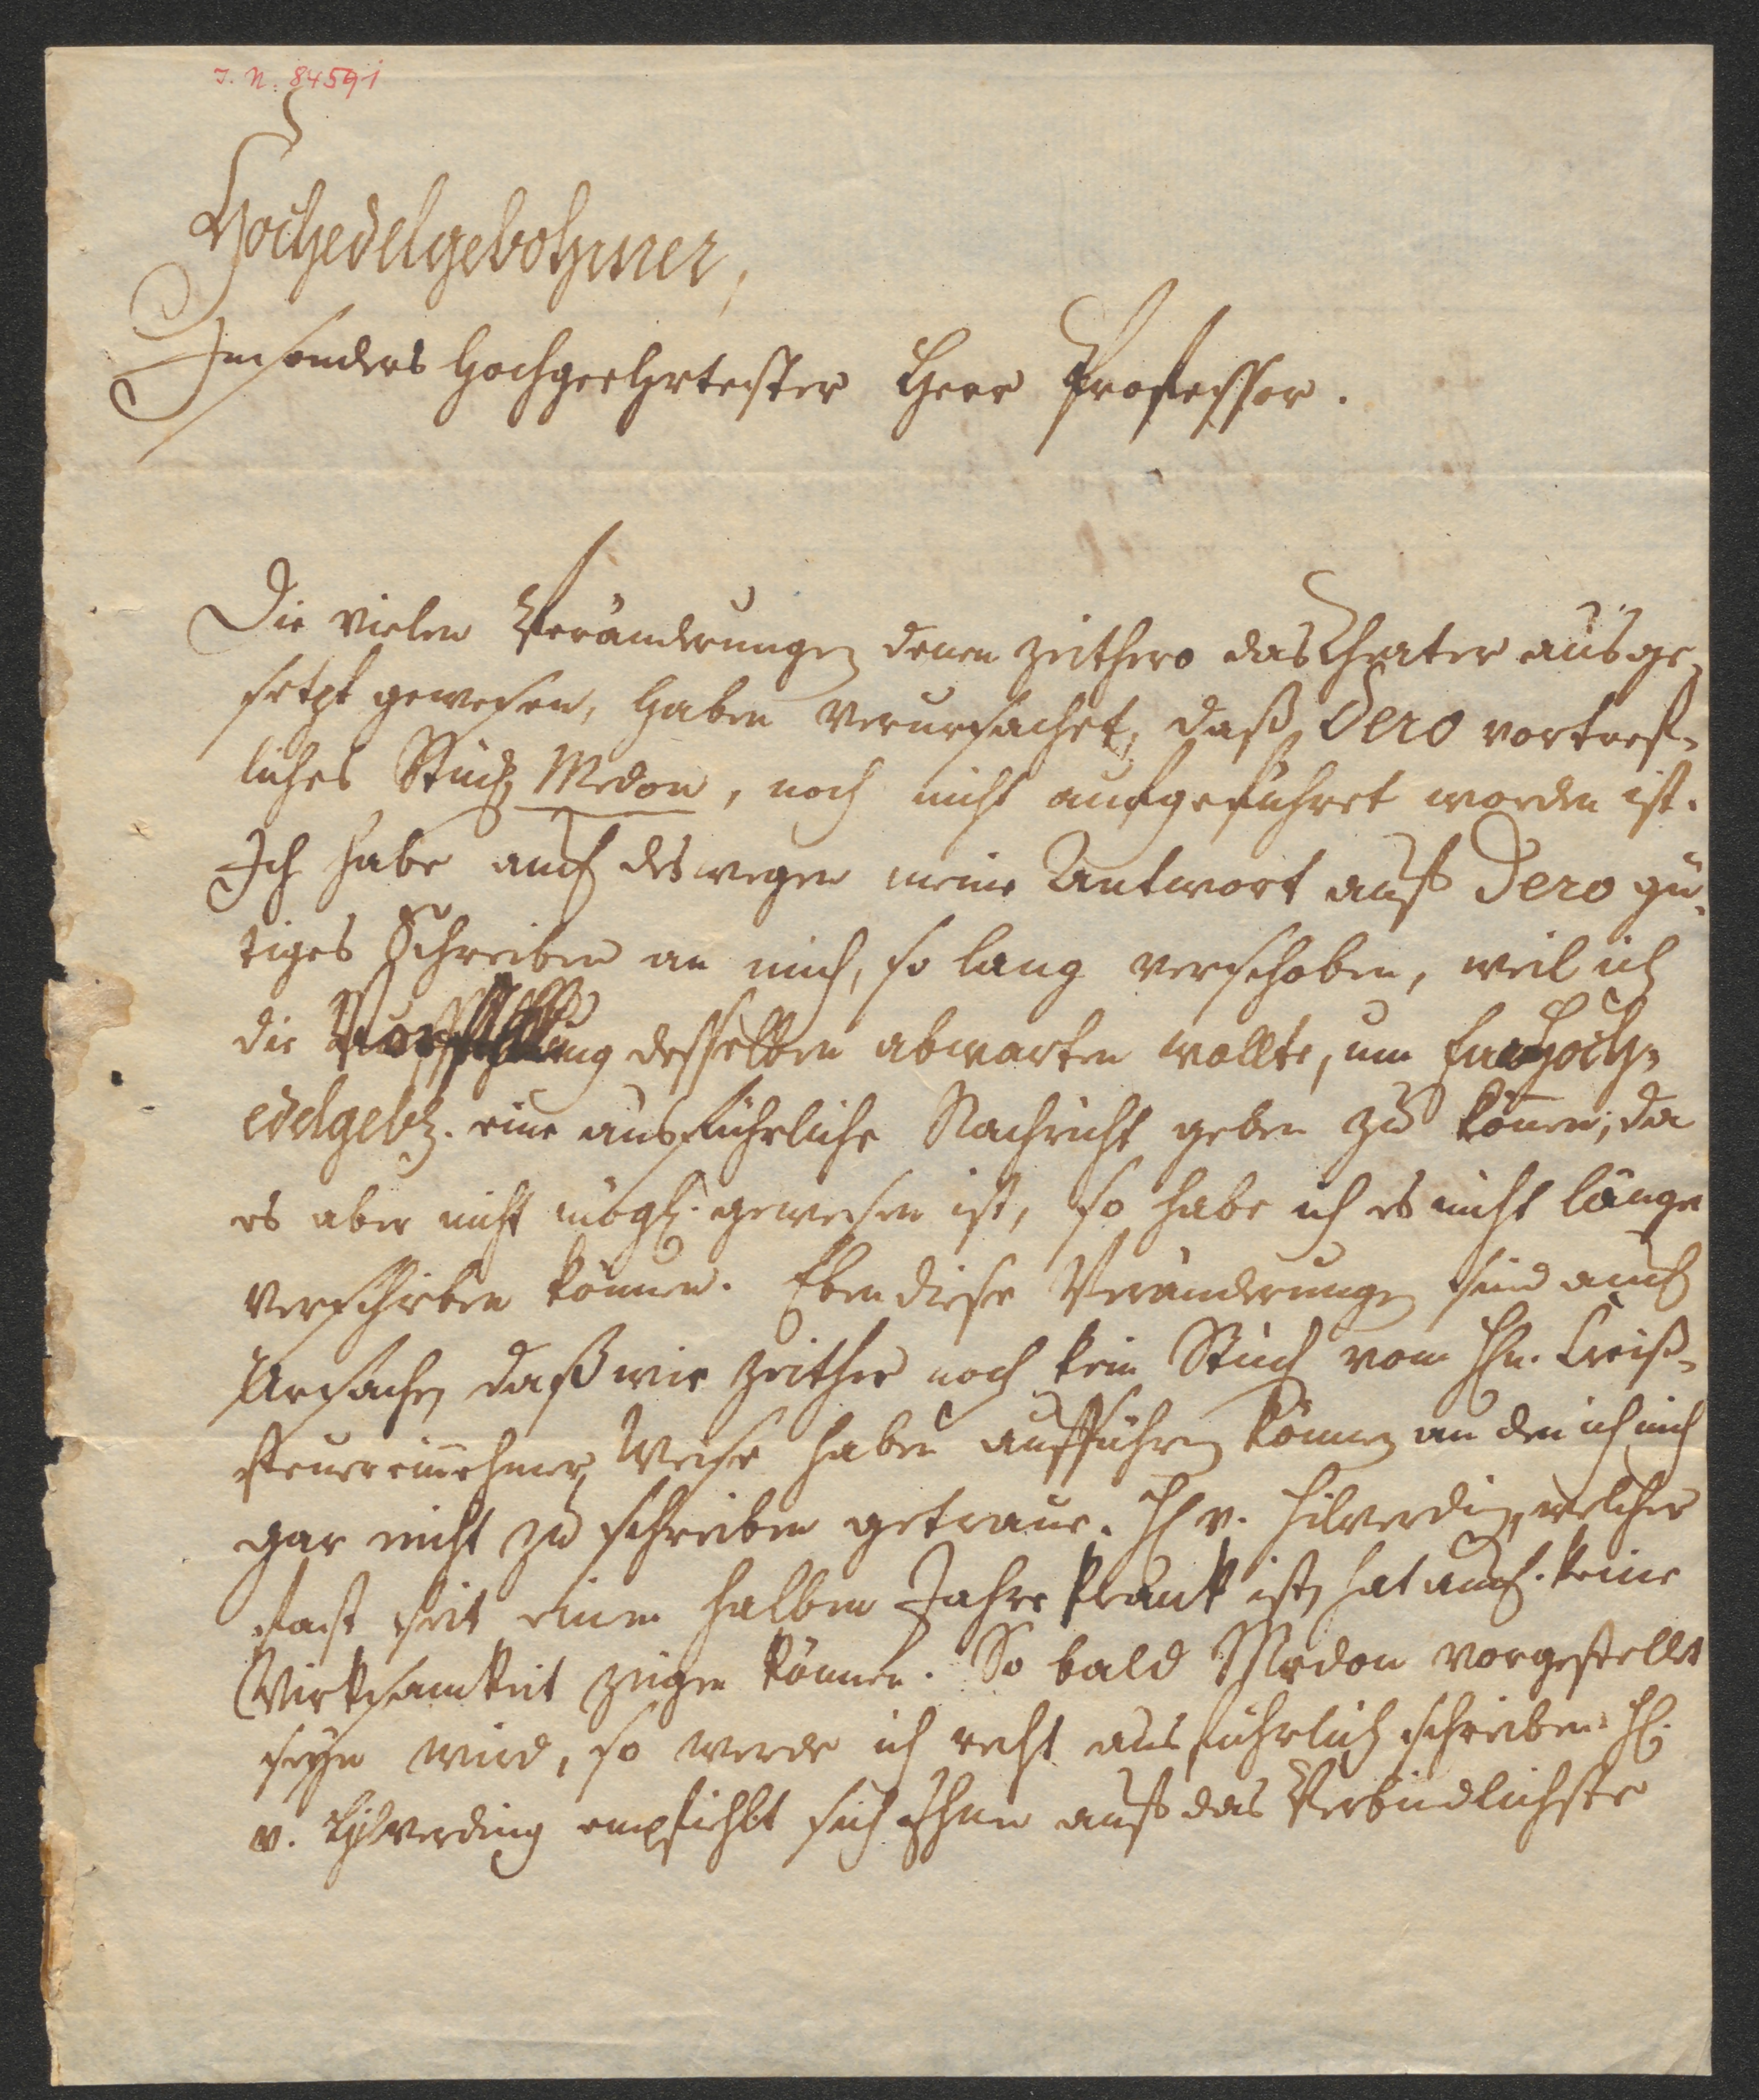 I. N. 84591
Hochedelgebohrner,
Insonders Hochgeehrtester Herr Professor.
Die vielen Veränderungen denen zeithero das Theater ausge-
setzt gewesen, haben verursachet, daß Dero vortref-
liches Stück, Medon, noch nicht aufgeführet worden ist.
Ich habe auch deswegen meine Antwort auf Dero gü-
tiges Schreiben an mich, so lang verschoben, weil ich
die Vorstellung desselben abwarten wollte, um Euer Hoch-
edelgeb. eine ausführliche Nachricht geben zu können; da
es aber nicht mögl. gewesen ist, so habe ich es nicht länger
verschieben können. Eben diese Veränderungen sind auch
Ursache, daß wir zeither noch kein Stück vom Hn. Creiß-
steuereinnehmer Weise haben aufführen können an den ich mich
gar nicht zu schreiben getraue. H v. Hilverding, welcher
fast seit einem halben Jahre krank ist, hat auch keine
Wirksamkeit zeigen können. So bald Medon vorgestellet
seyn wird, so werde ich recht ausführlich schreiben. H.
v. Hilverding empfiehlt sich Ihnen auf das Verbindlichste